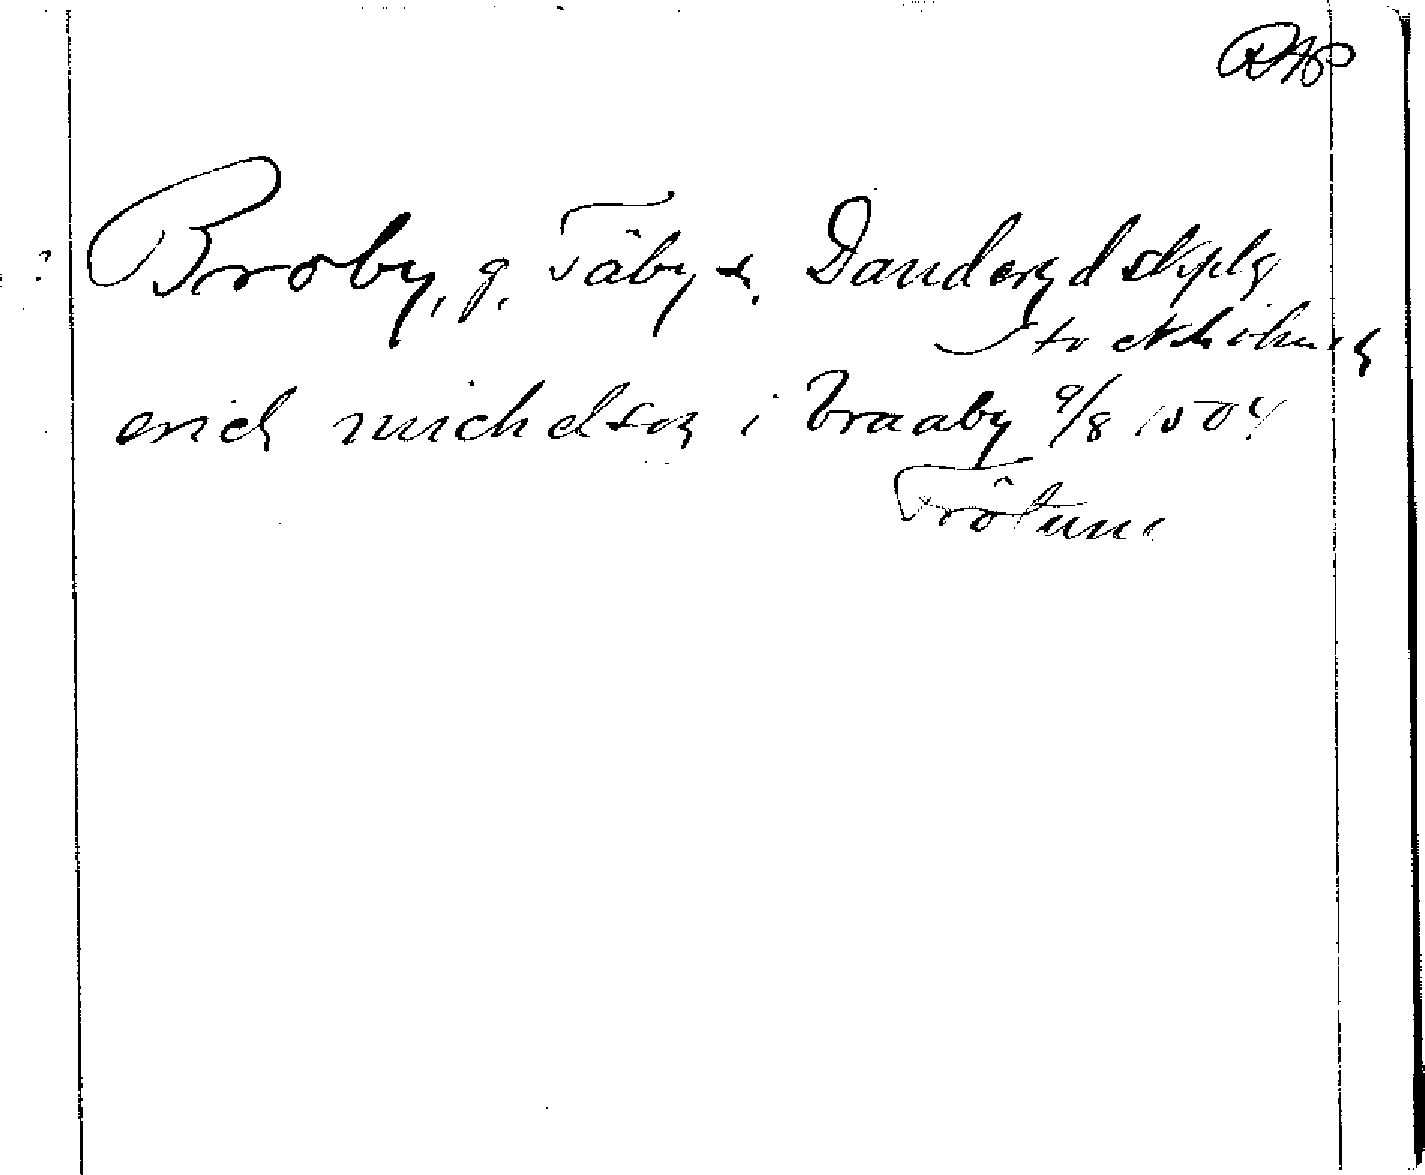 RAP
? Broby, g. Täby s. Danderyd skplg
Stockholms l
erich michelson i braaby 9/8 1504
Frötuna